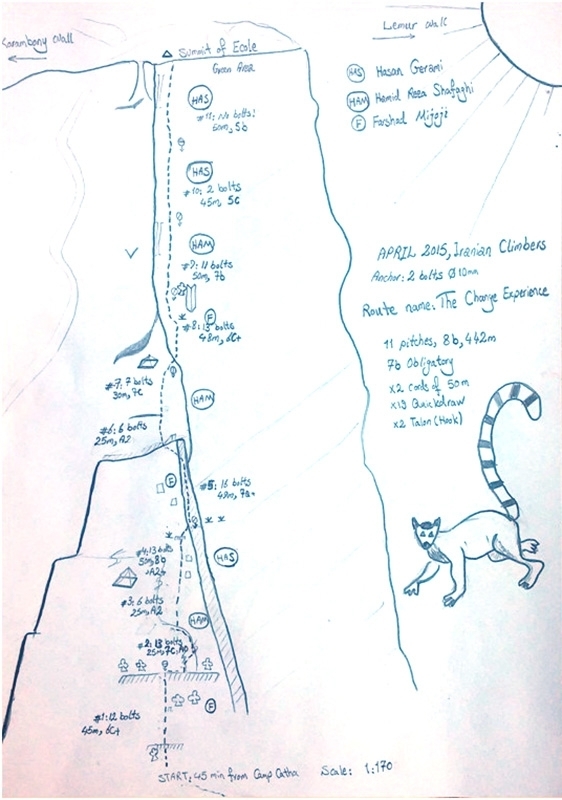 Karambony wall
Lemur wall
Summit of Ecole
Green Area
HAS Hasan Gerami
HAM Hamid Reza Shafaghi
F Farshad Mijoji
HAS
#11: No bolts!
50m, 5b
HAS
#10: 2 bolts
45m, 5c
HAM
#9: 11 bolts
50m, 7b
F
#8: 13 bolts
48m, 6C+
APRIL 2015, Iranian Climbers
Anchor: 2 bolts Ø10mm
Route name: The Change Experience
11 pitches, 8b, 442m
7b Obligatory
x2 cords of 50m
x13 Quickdraw
x2 Talon (Hook)
#7: 7 bolts
30m, 7c
HAM
#6: 6 bolts
25m, A2
F
#5: 16 bolts
HAS
#4: 13 bolts
50m, 8b
#3: 6 bolts
25m, A2
HAM
#2: 13 bolts
#1: 12 bolts
45m, 6C+
F
START: 45 min from Camp Catta
Scale: 1:170